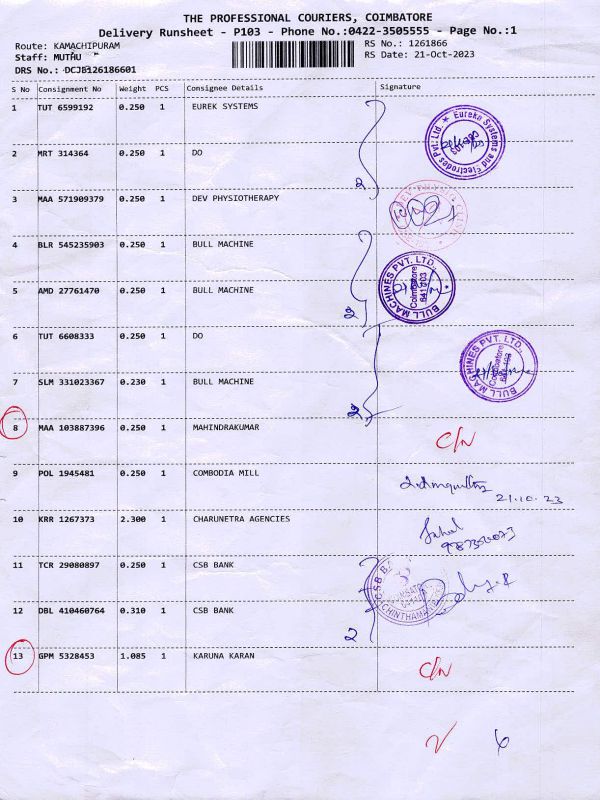 THE PROFESSIONAL COURIERS, COIMBATORE
Delivery Runsheet - P103 - Phone No.:0422-3505555 - Page No.:1
Route: KAMACHIPURAM
RS No.: 1261866
Staff: MUTHU
RS Date: 21-Oct-2023
DRS No.: DCJB126186601
S No Consignment No Weight PCS Consignee Details Signature
1 TUT 6599192 0.250 1 EUREK SYSTEMS
Eureka Systems and Electrodes Pvt. Ltd.
2 MRT 314364 0.250 1 DO
2
3 MAA 571909379 0.250 1 DEV PHYSIOTHERAPY
4 BLR 545235903 0.250 1 BULL MACHINE
BULL MACHINES PVT. LTD.,
Coimbatore
641 103
5 AMD 27761470 0.250 1 BULL MACHINE
2
6 TUT 6608333 0.250 1 DO
BULL MACHINES PVT. LTD.,
Coimbatore
641 103
7 SLM 331023367 0.230 1 BULL MACHINE
2
8 MAA 103887396 0.250 1 MAHINDRAKUMAR
C/N
9 POL 1945481 0.250 1 COMBODIA MILL
21.10.23
10 KRR 1267373 2.300 1 CHARUNETRA AGENCIES
11 TCR 29080897 0.250 1 CSB BANK
CSB BANK
12 DBL 410460764 0.310 1 CSB BANK
2
13 GPM 5328453 1.085 1 KARUNA KARAN
C/N
6